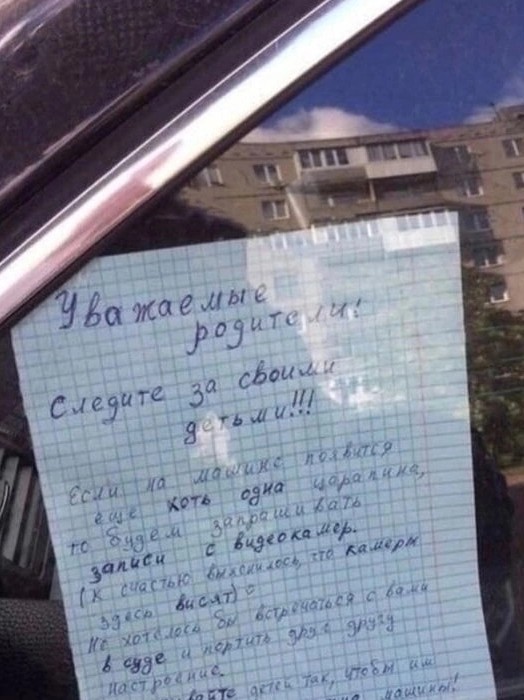 Уважаемые
родители!
Следите за своими
детьми!!!
Если на машине появится
еще хоть одна царапина,
то будем запрашивать
записи с видеокамер.
(К счастью выяснилось, что камеры
здесь висят)
Не хотелось бы встречаться с вами
в суде и портить друг другу
настроение.
детей так, чтобы им
машины!